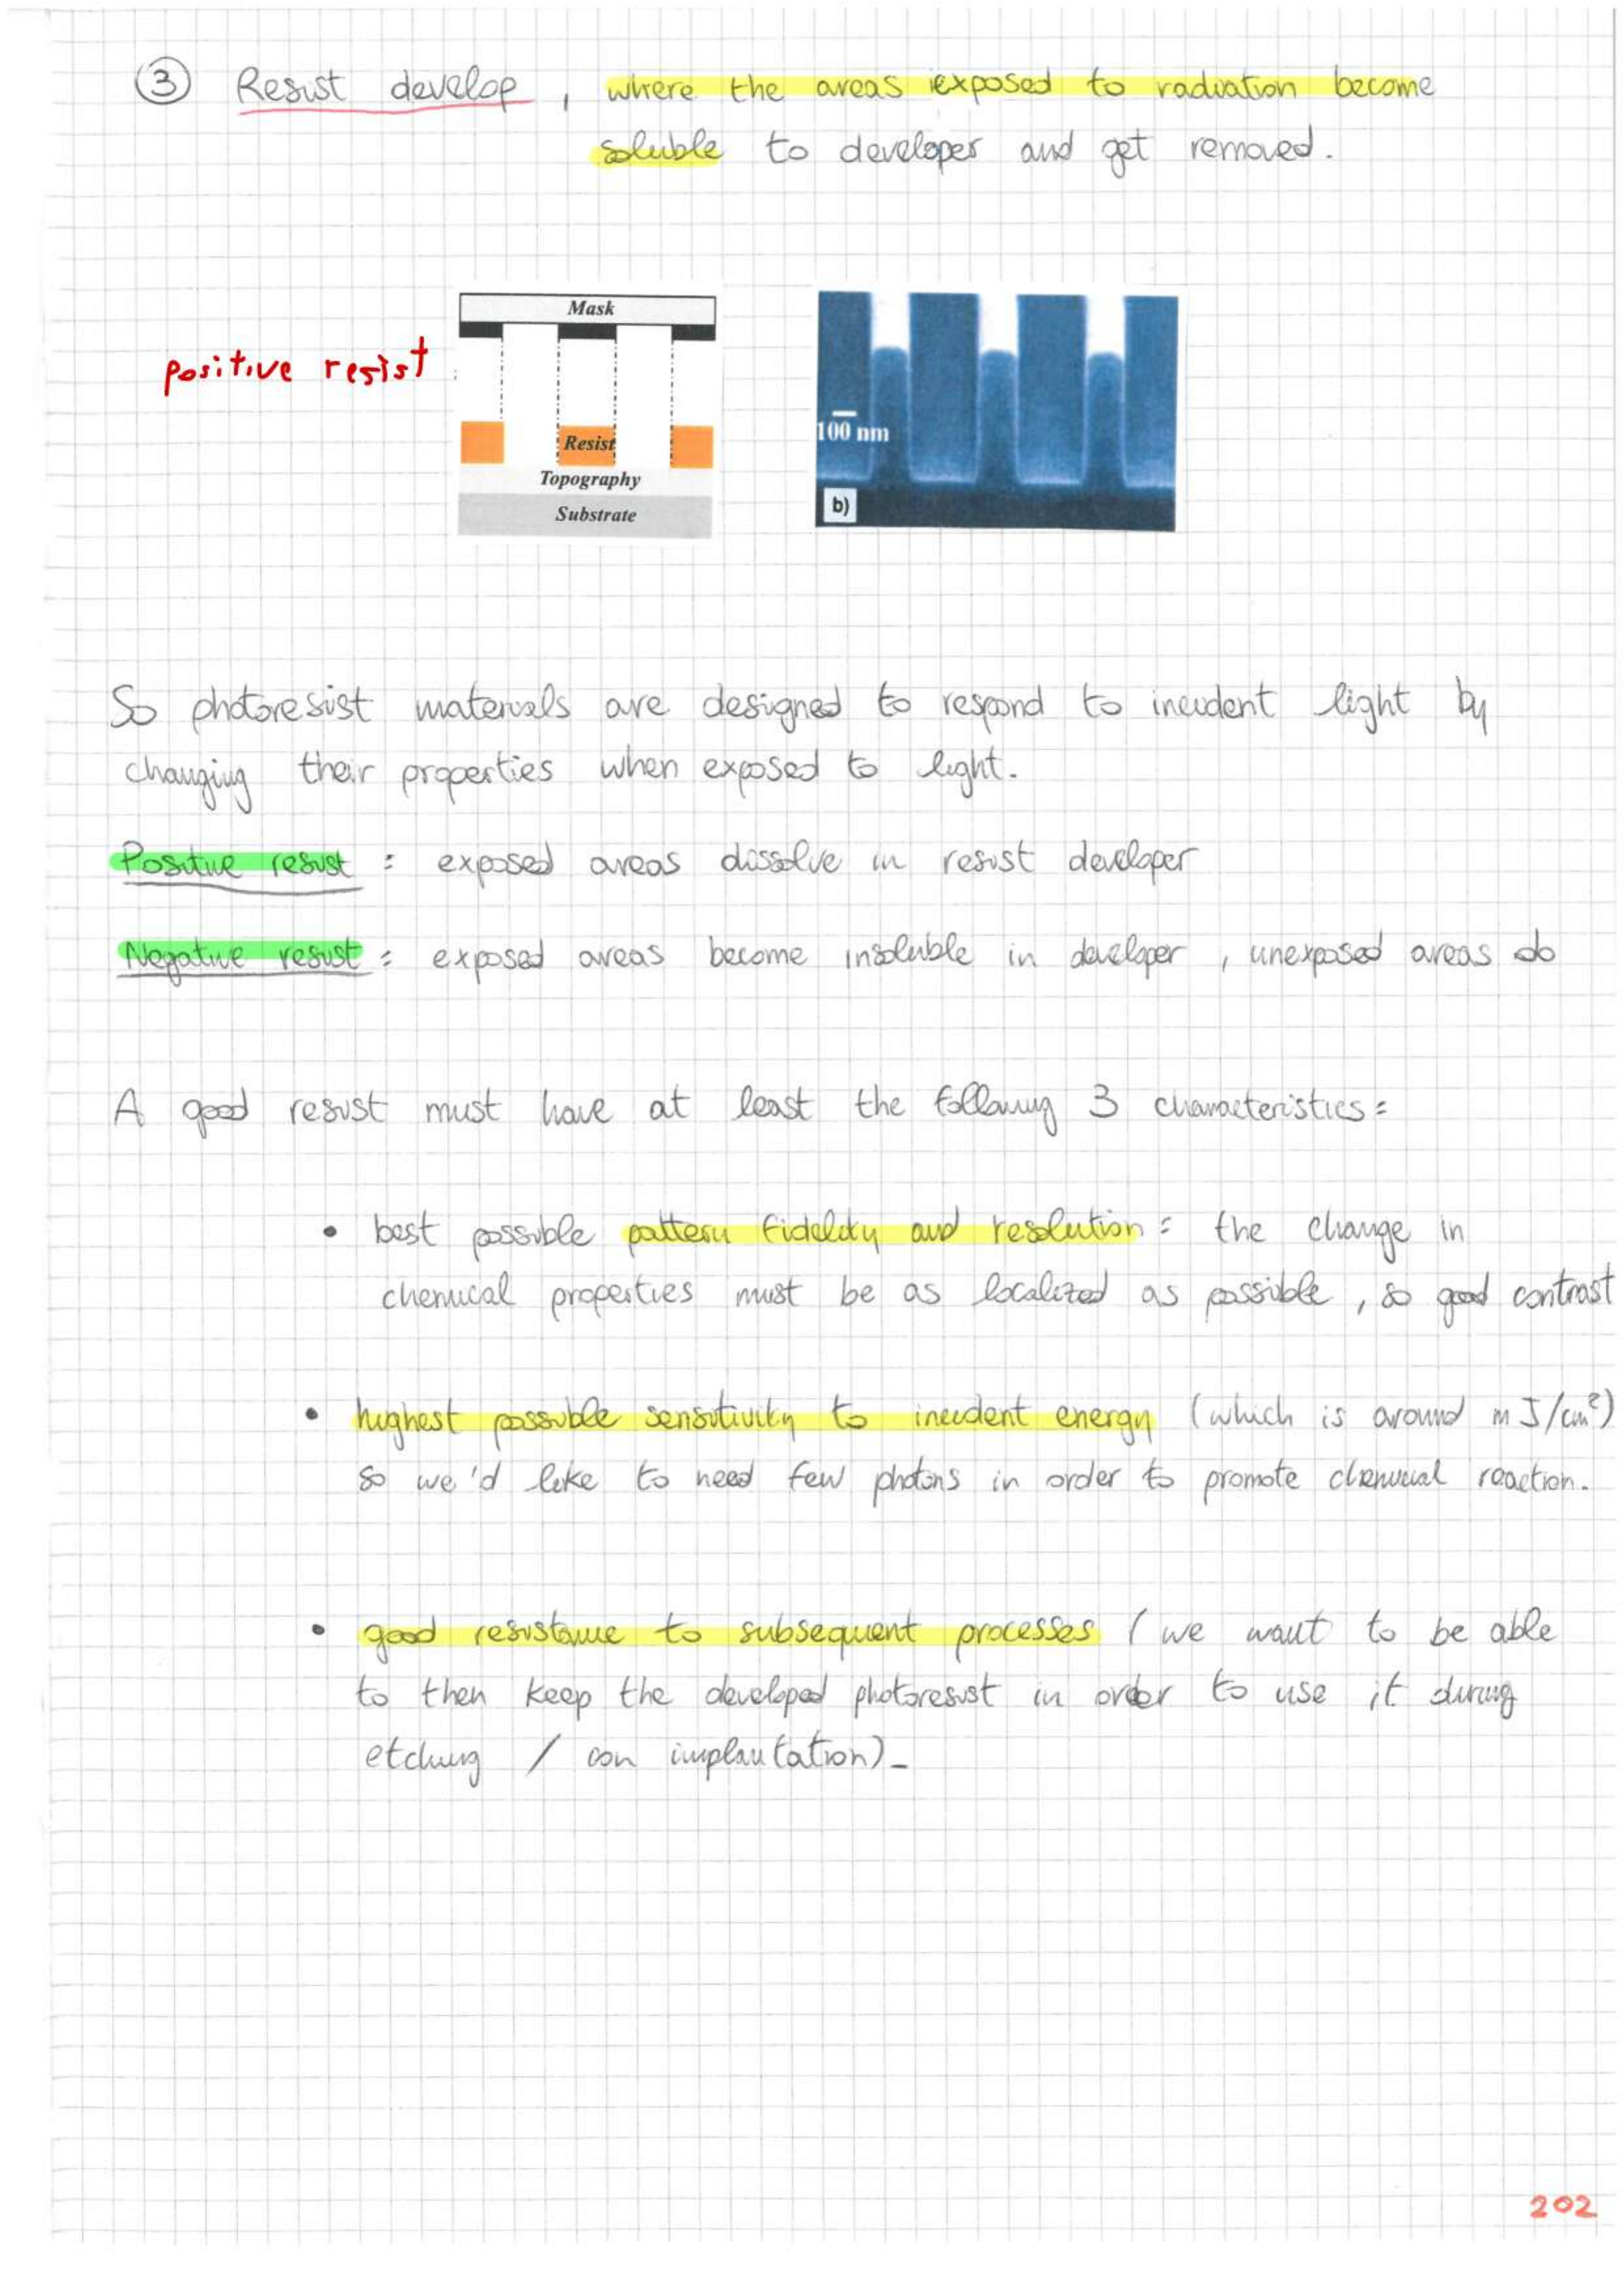 3 Resist develop, where the areas exposed to radiation become
soluble to developer and get removed.
positive resist
Mask
Resist
Topography
Substrate
100 nm
b)
So photoresist materials are designed to respond to incident light by
changing their properties when exposed to light.
Positive resist = exposed areas dissolve in resist developer
Negative resist = exposed areas become insoluble in developer, unexposed areas do
A good resist must have at least the following 3 characteristics =
• best possible pattern fidelity and resolution = the change in
chemical properties must be as localized as possible, so good contrast
• highest possible sensitivity to incident energy (which is around mJ/cm²)
so we'd like to need few photons in order to promote chemical reaction.
• good resistance to subsequent processes (we want to be able
to then keep the developed photoresist in order to use it during
etching / ion implantation)_
202